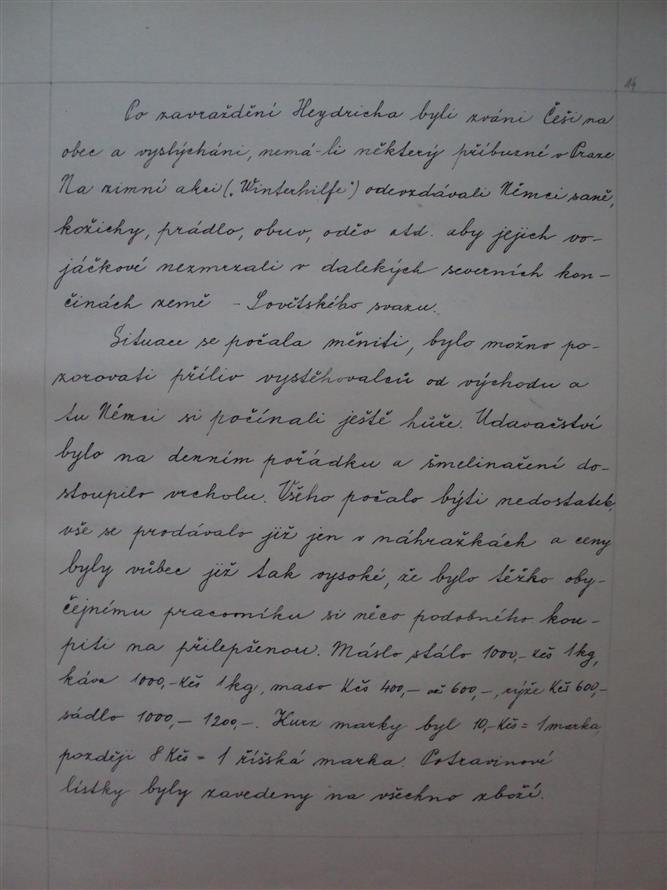 14
Po zavraždění Heydricha byli zváni Češi na
obec a vyslýcháni, nemá-li některý příbuzné v Praze
Na zimní akci („Winterhilfe") odevzdávali Němci saně,
kožichy, prádlo, obuv, oděv atd. aby jejich vo-
jáčkové nezmrzali v dalekých severních kon-
činách země - Sovětského svazu.
Situace se počala měniti, bylo možno po-
zorovati příliv vystěhovalců od východu a
tu Němci si počínali ještě hůře. Udavačství
bylo na denním pořádku a šmelinaření do-
stoupilo vrcholu. Všeho počalo býti nedostatek,
vše se prodávalo již jen v náhražkách a ceny
byly vůbec již tak vysoké, že bylo těžko oby-
čejnému pracovníku si něco podobného kou-
piti na přilepšenou. Máslo stálo 1000,- Kčs 1 kg,
káva 1000,- Kčs 1 kg, maso Kčs 400,- až 600,-, rýže Kčs 600,-
sádlo 1000,- 1200,-. Kurz marky byl 10,- Kčs = 1 marka,
později 8 Kčs = 1 říšská marka. Potravinové
lístky byly zavedeny na všechno zboží.